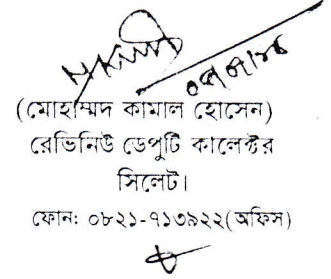 (মোহাম্মদ কামাল হোসেন)
রেভিনিউ ডেপুটি কালেক্টর
সিলেট।
ফোন: ০৮২১-৭১৩৯২২(অফিস)